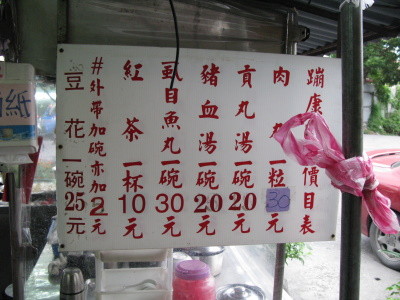 蹦康價目表
肉丸一粒30元
貢丸湯一碗20元
豬血湯一碗20元
虱目魚丸一碗30元
紅茶一杯10元
#外帶加碗亦加2元
豆花一碗25元
紙